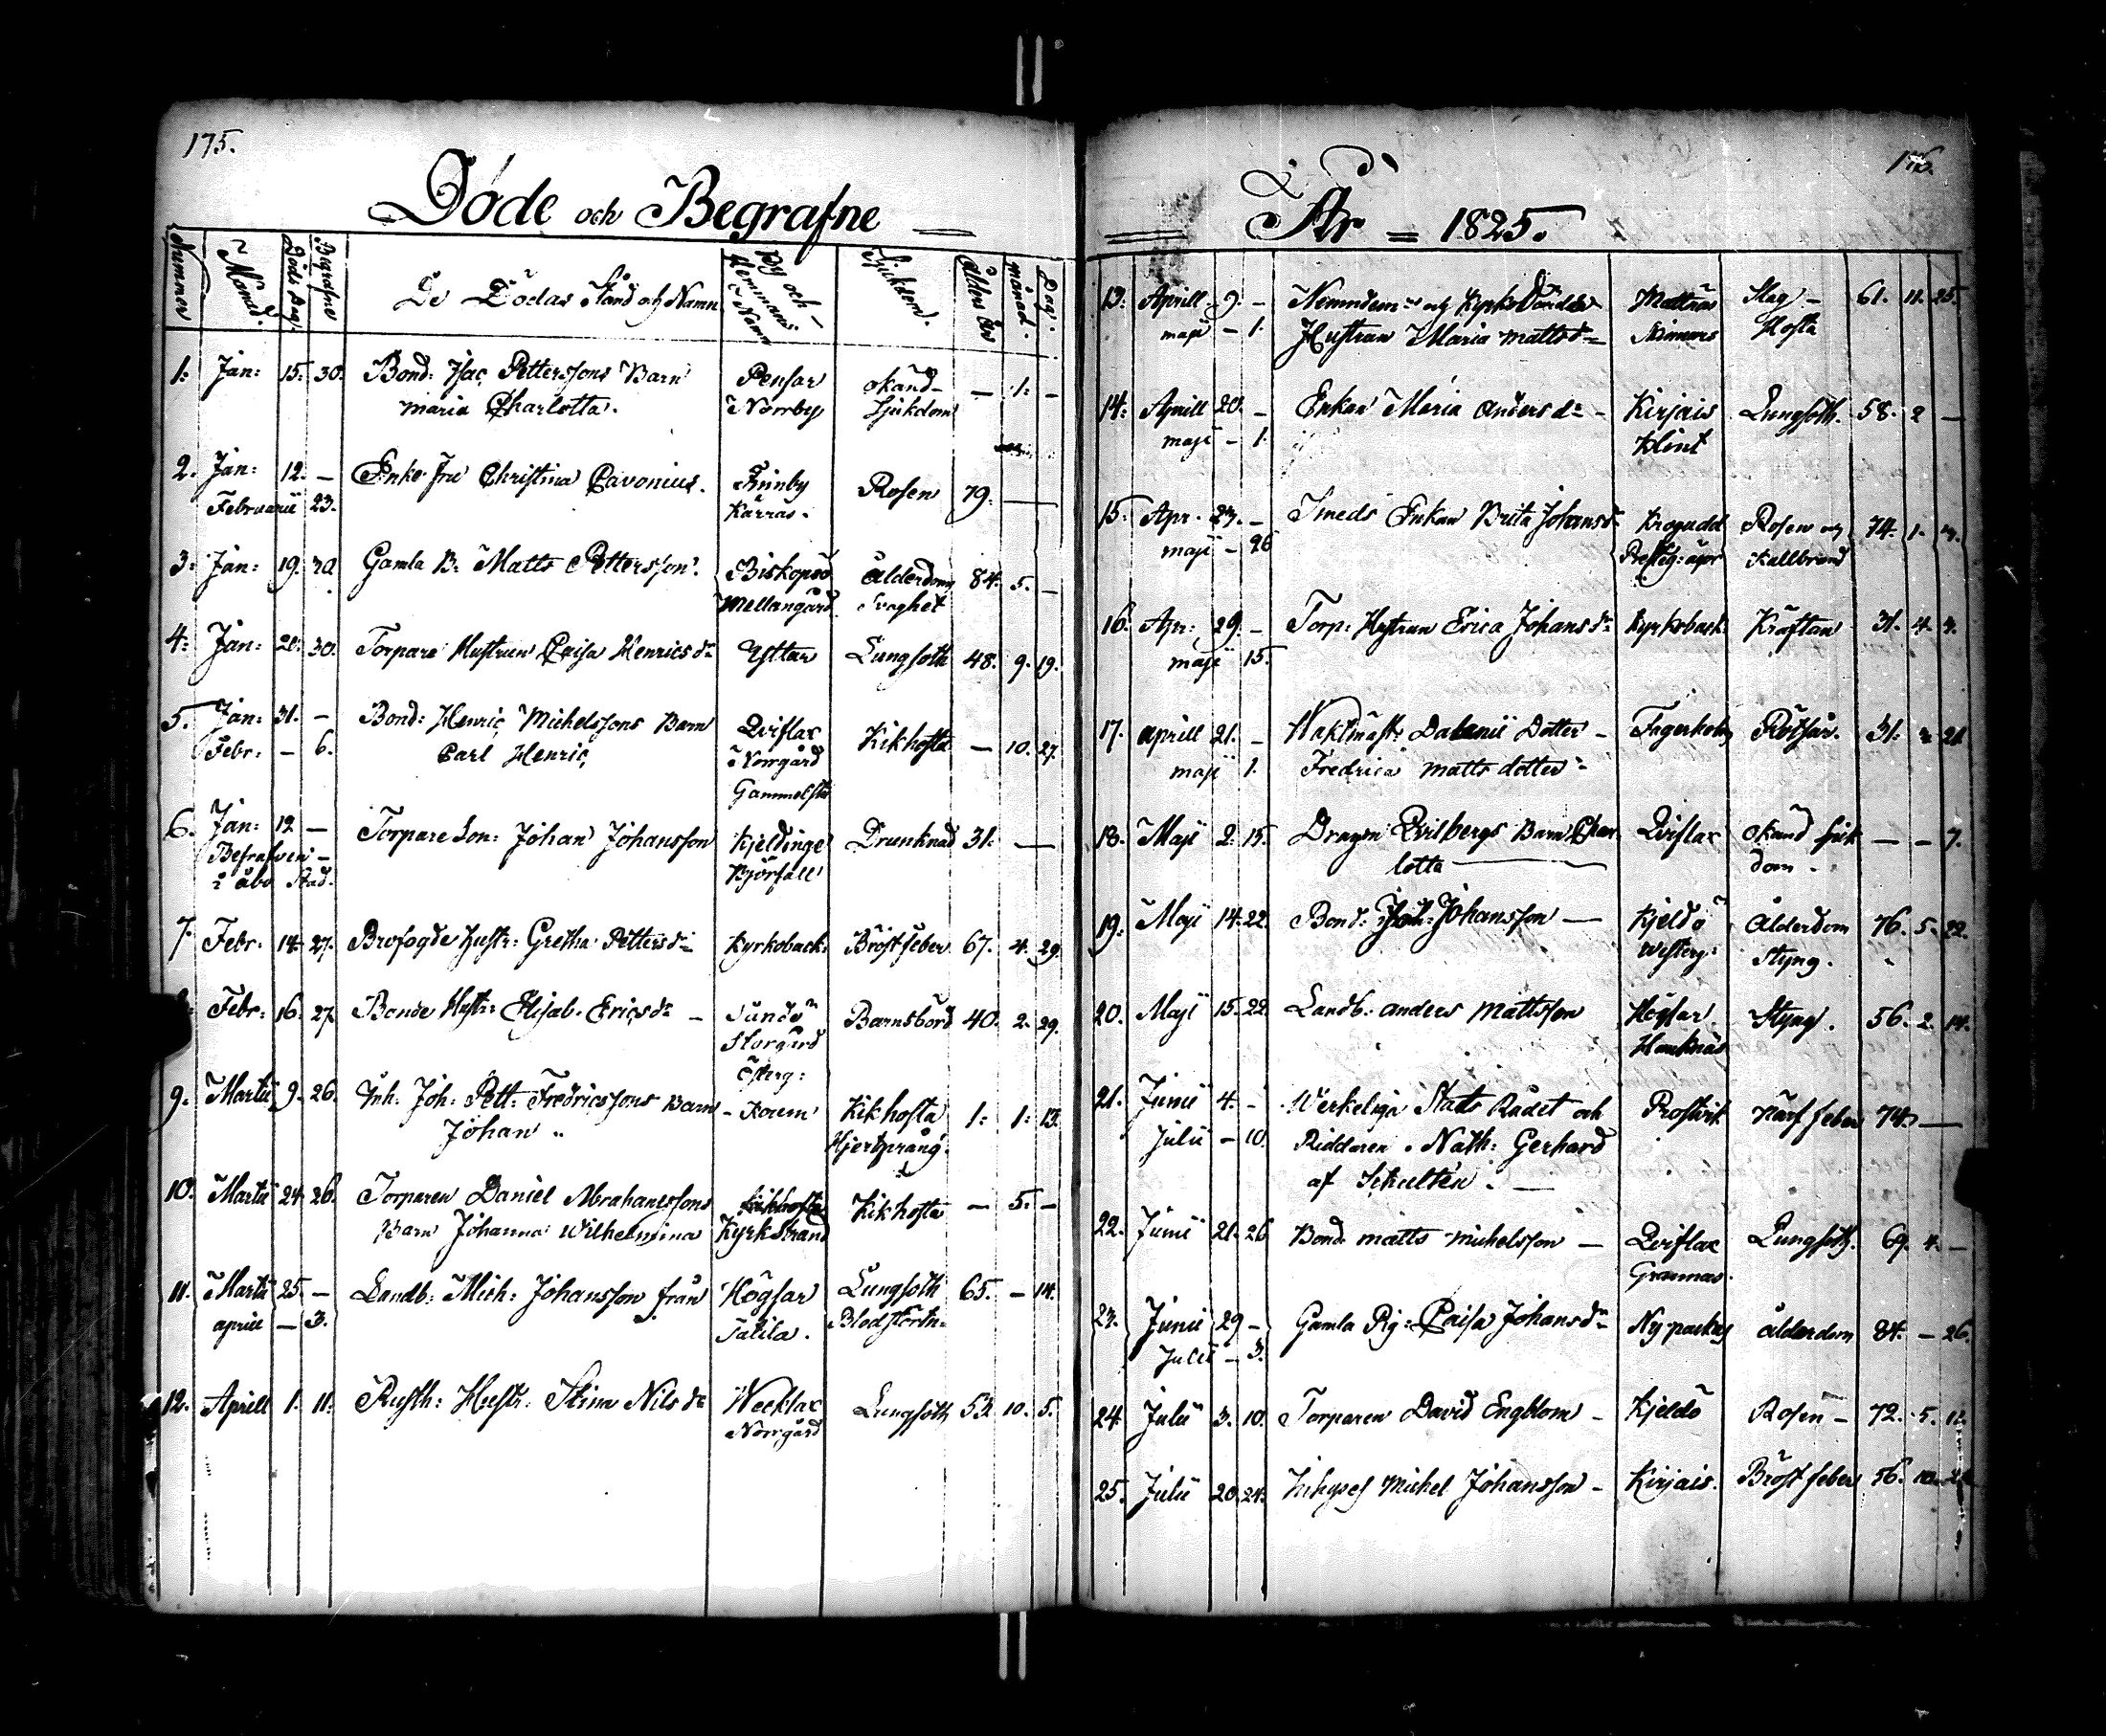 175.
Döde och Begrafne
Nummer Månad. Döds Dag. Begrafne De Dödas Stånd och Namn By och Hemmans Namn Sjukdom. Ålder År månad. Dag.
1. Jan: 15. 30. Bond: Isac Petterssons Barn Pensar okänd — 1. —
maria Charlotta. Norrby Sjukdom
2. Jan: 12. — Enke Fru Christina Cavonius. Finnby Rosen 79. —
Februarii 23. Kärras.
3. Jan: 19. 30. Gamla B: Matts Pettersson. Biskopsö Ålderdoms 84. 5. —
Mellangård Svaghet
4. Jan: 21. 30. Torpare Hustrun Caisa Henricsdr Yttar Lungsoth 48. 9. 19.
5. Jan: 31. — Bond: Henric Michelssons Barn Qviflax Kikhosta — 10. 27.
Febr: — 6. Carl Henric Norrgård
Gammelstu
6. Jan: 12 — Torpare Son: Johan Johansson Kjeldinge Drunknad 31. —
Begrafven — Björsäll
i åbo Stad.
7. Febr. 14 27. Brofogde Hustr: Gretha Pettersdr Kyrkoback: Bröstfeber 67. 4. 29.
Febr: 16. 27. Bonde Hustr: Elisab. Ericsdr — Sandö Barnsbörd 40. 2. 29.
Storgård
Österg:
9. Martii 9. 26. Inh. Joh: Pett: Fredricssons Barn — Korum Kikhosta 1. 1. 13.
Johan Hjertsprång.
10. Martii 24. 26. Torparen Daniel Abrahamssons Kikhosta Kikhosta — 5. —
Barn Johanna Wilhelmina KyrkStrand
11. Martii 25. — Landb: Mich: Johansson från Högsar Lungsoth 65. — 14.
aprill — 3. Tatila. Blodstörtn:
12. Aprill 1. 11. Rusth: Hustr: Stina Nilsdr Wecklax Lungsoth 53. 10. 5.
Norrgård
176.
År = 1825.
13. Aprill 9. — Nemndem: och Kyrko Wärdens Mattnäs Slag — 61. 11. 25.
maji — 1. Hustrun Maria mattsdr Nimmens Hosta
14. Aprill 20. — Enkan Maria Andersdr — Kirjais Lungsoth. 58. 2 —
maji — 1. Klint
15. Apr. 23. — Smeds Enkan Brita Johansdr Krogudd Rosen och 74. 1. 3.
maji — 26 Kallbrand
16. Apr: 29. — Torp: Hustrun Erica Johansdr Kyrkoback: Kräftan 31. 4. 4.
maji 15.
17. aprill 21. — Waktmäst: Dalanii Dotter — Fagerholm Rötsår. 31. 2 21
maji 1. Fredrica matts dotter
18. Maji 2. 15. Dragon Qvilbergs Barn Char Qviflax Okänd sjuk — — 7.
lotta — dom.
19. Maji 14. 22. Bond: Joh: Johansson — Kjeldö Ålderdom 76. 5. 22.
Westerg: Styng.
20. Maji 15. 22. Landb: anders Mattsson Högsar Styng. 56. 2. 14.
21. Junii 4. — Werkeliga Stats Rådet och Prostvik Närf feber 74. —
Julii — 10. Riddaren. Nath: Gerhard
af Schultén. —
22. Junii 21. 26 Bond matts michelsson — Qviflax Lungsoth. 69. 4. —
Grannas.
23. Junii 29 — Gamla Pig: Caisa Johansdr Nypackas ålderdom 84. — 26.
Julii — 3.
24 Julii 3. 10. Torparen David Engblom — Kjeldö Rosen — 72. 5. 12.
25. Julii 20. 24. Inhyses Michel Johansson — Kirjais. Bröst feber 56. 10.